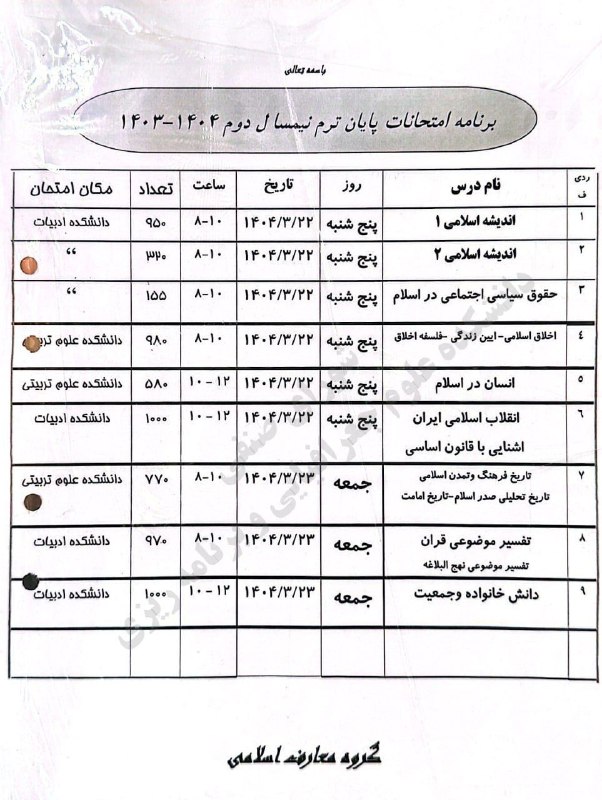 باسمه تعالی
برنامه امتحانات پایان ترم نیمسال دوم ۱۴۰۴-۱۴۰۳
ردیف نام درس روز تاریخ ساعت تعداد مکان امتحان
۱ اندیشه اسلامی ۱ پنج شنبه ۱۴۰۴/۳/۲۲ ۸-۱۰ ۹۵۰ دانشکده ادبیات
۲ اندیشه اسلامی ۲ پنج شنبه ۱۴۰۴/۳/۲۲ ۸-۱۰ ۳۲۰ “
۳ حقوق سیاسی اجتماعی در اسلام پنج شنبه ۱۴۰۴/۳/۲۲ ۸-۱۰ ۱۵۵ “
۴ اخلاق اسلامی- ایین زندگی -فلسفه اخلاق پنج شنبه ۱۴۰۴/۳/۲۲ ۸-۱۰ ۹۸۰ دانشکده علوم تربیتی
۵ انسان در اسلام پنج شنبه ۱۴۰۴/۳/۲۲ ۱۰-۱۲ ۵۸۰ دانشکده علوم تربیتی
۶ انقلاب اسلامی ایران پنج شنبه ۱۴۰۴/۳/۲۲ ۱۰-۱۲ ۱۰۰۰ دانشکده ادبیات
اشنایی با قانون اساسی
۷ تاریخ فرهنگ وتمدن اسلامی جمعه ۱۴۰۴/۳/۲۳ ۸-۱۰ ۷۷۰ دانشکده علوم تربیتی
تاریخ تحلیلی صدر اسلام-تاریخ امامت
۸ تفسیر موضوعی قران جمعه ۱۴۰۴/۳/۲۳ ۸-۱۰ ۹۷۰ دانشکده ادبیات
تفسیر موضوعی نهج البلاغه
۹ دانش خانواده وجمعیت جمعه ۱۴۰۴/۳/۲۳ ۱۰-۱۲ ۱۰۰۰ دانشکده ادبیات
شورای صنفی
دانشکده علوم جغرافیایی و برنامه ریزی
گروه معارف اسلامی